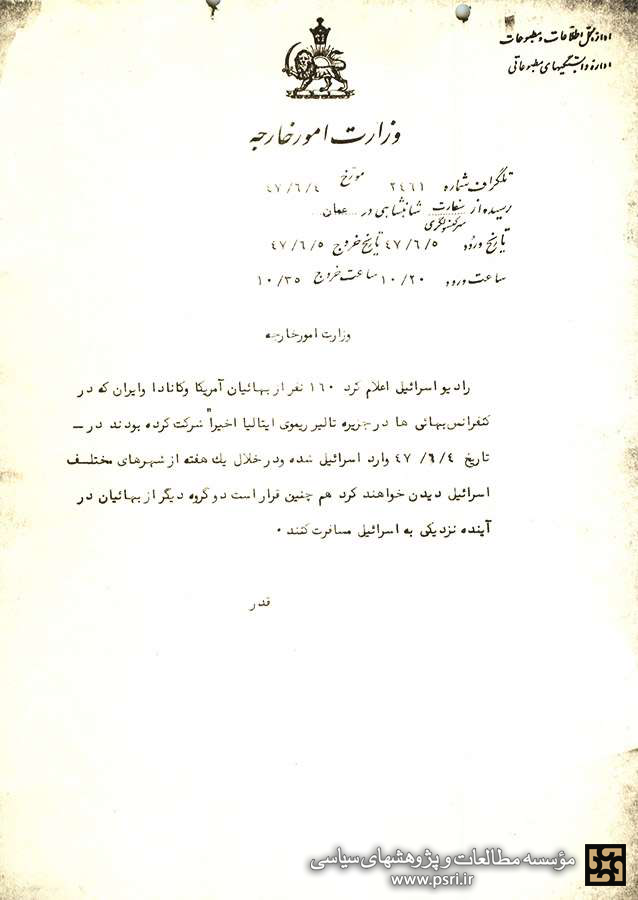 اداره کل اطلاعات و مطبوعات
اداره وابستگیهای مطبوعاتی
وزارت امور خارجه
تلگراف شماره ۲۴۶۱ مورخ ۴۷/۶/۴
رسیده از سفارت شاهنشاهی در عمان
سرکنسولگری
تاریخ ورود ۴۷/۶/۵ تاریخ خروج ۴۷/۶/۵
ساعت ورود ۱۰/۲۰ ساعت خروج ۱۰/۳۵
وزارت امور خارجه
رادیو اسرائیل اعلام کرد ۱۶۰ نفر از بهائیان آمریکا وکانادا وایران که در
کنفرانس بهائی ها در جزیره تالیر ریموی ایتالیا اخیرا" شرکت کرده بودند در ــ
تاریخ ۴۷/۶/۴ وارد اسرائیل شده ودر خلال یك هفته از شهرهای مختلف
اسرائیل دیدن خواهند کرد هم چنین قرار است دو گروه دیگر از بهائیان در
آینده نزدیکی به اسرائیل مسافرت کنند ۰
قدر
مؤسسه مطالعات و پژوهشهای سیاسی
www.psri.ir